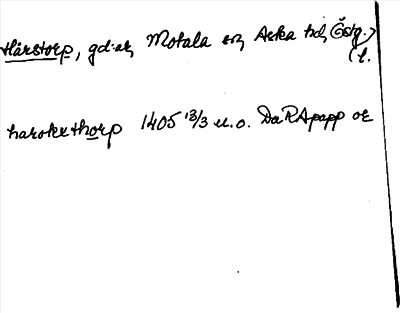 Hårstorp, gd. Motala sn, Aska hd, Östg.
(l.
haroxethorp 1405 13/3 u.o. DaRApapp or